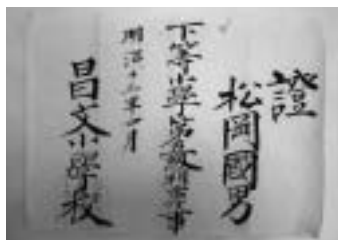 證
松岡國男
下等小學第級卒業事
明治十二年一月
昌文小學校